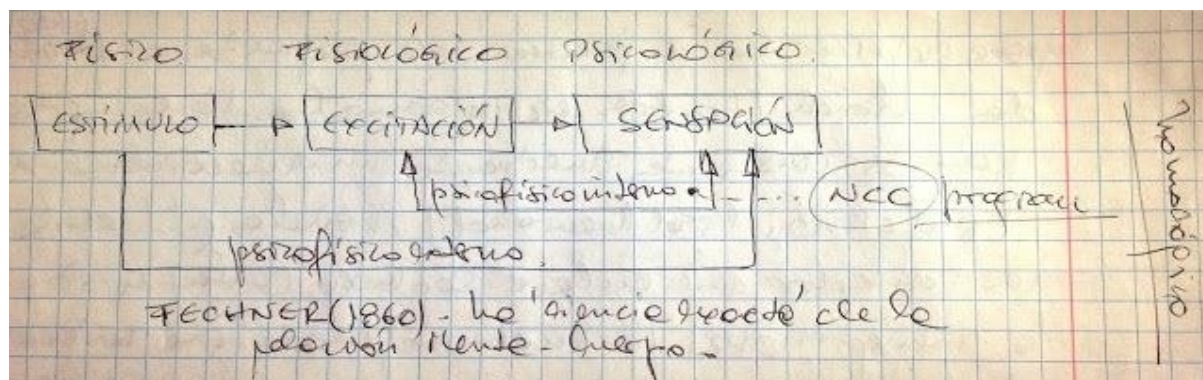 FÍSICO FISIOLÓGICO PSICOLÓGICO.
ESTÍMULO EXCITACIÓN SENSACIÓN
psicofísica interna ... NCC program
psicofísica externa.
FECHNER (1860) - La 'ciencia exacta' de la
relación Mente - Cuerpo -